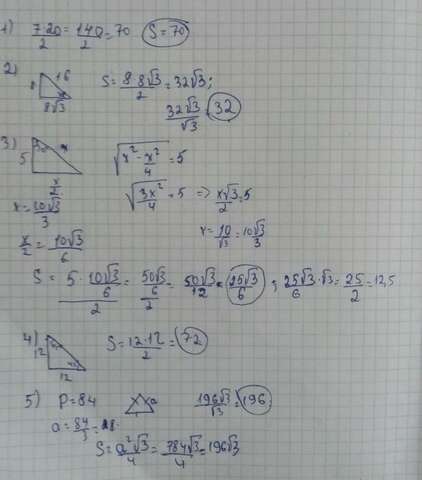 1) 7·20/2 = 140/2 = 70 S = 70
2) 8 16 8√3 S = 8·8√3/2 = 32√3;
32√3/√3 = 32
3) 5 x x/2 √(x² - x²/4) = 5
√(3x²/4) = 5 => x√3/2 = 5
x = 10√3/3 x = 10/√3 = 10√3/3
x/2 = 10√3/6
S = (5·10√3/6)/2 = (50√3/6)/2 = 50√3/12 = 25√3/6 ; 25√3/6·√3 = 25/2 = 12,5
4) 12 12 S = 12·12/2 = 72
5) P = 84 a 196√3/√3 = 196
a = 84/3 = 28
S = a²√3/4 = 784√3/4 = 196√3